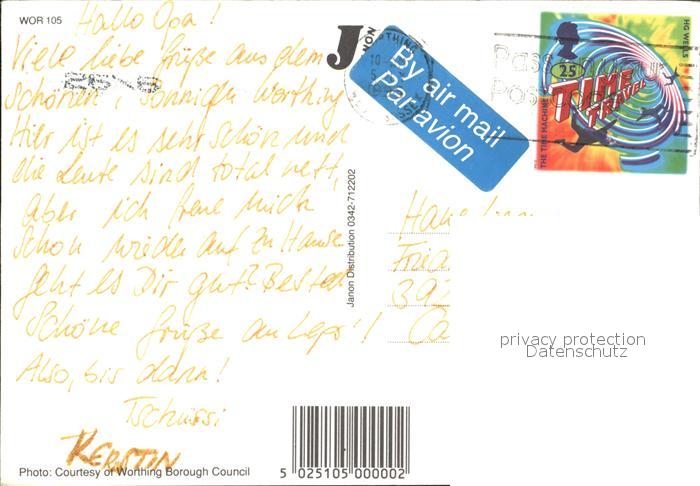 WOR 105
Hallo Opa!
Viele liebe Grüße aus dem
schönen, sonnigen Worthing
Hier ist es sehr schön und
die Leute sind total nett,
aber ich freue mich
schon wieder auf zu Hause
geht es Dir gut? Bestelle
Schöne Grüße an Lepo'!
Also, bis dann!
Tschüssi
KERSTIN
Photo: Courtesy of Worthing Borough Council
Janon Distribution 0342-712202
J
NON
By air mail
Par avion
HG WELLS
25
TIME
TRAVEL
THE TIME MACHINE
Frie
392
Ca
privacy protection
Datenschutz
5 025105 000002